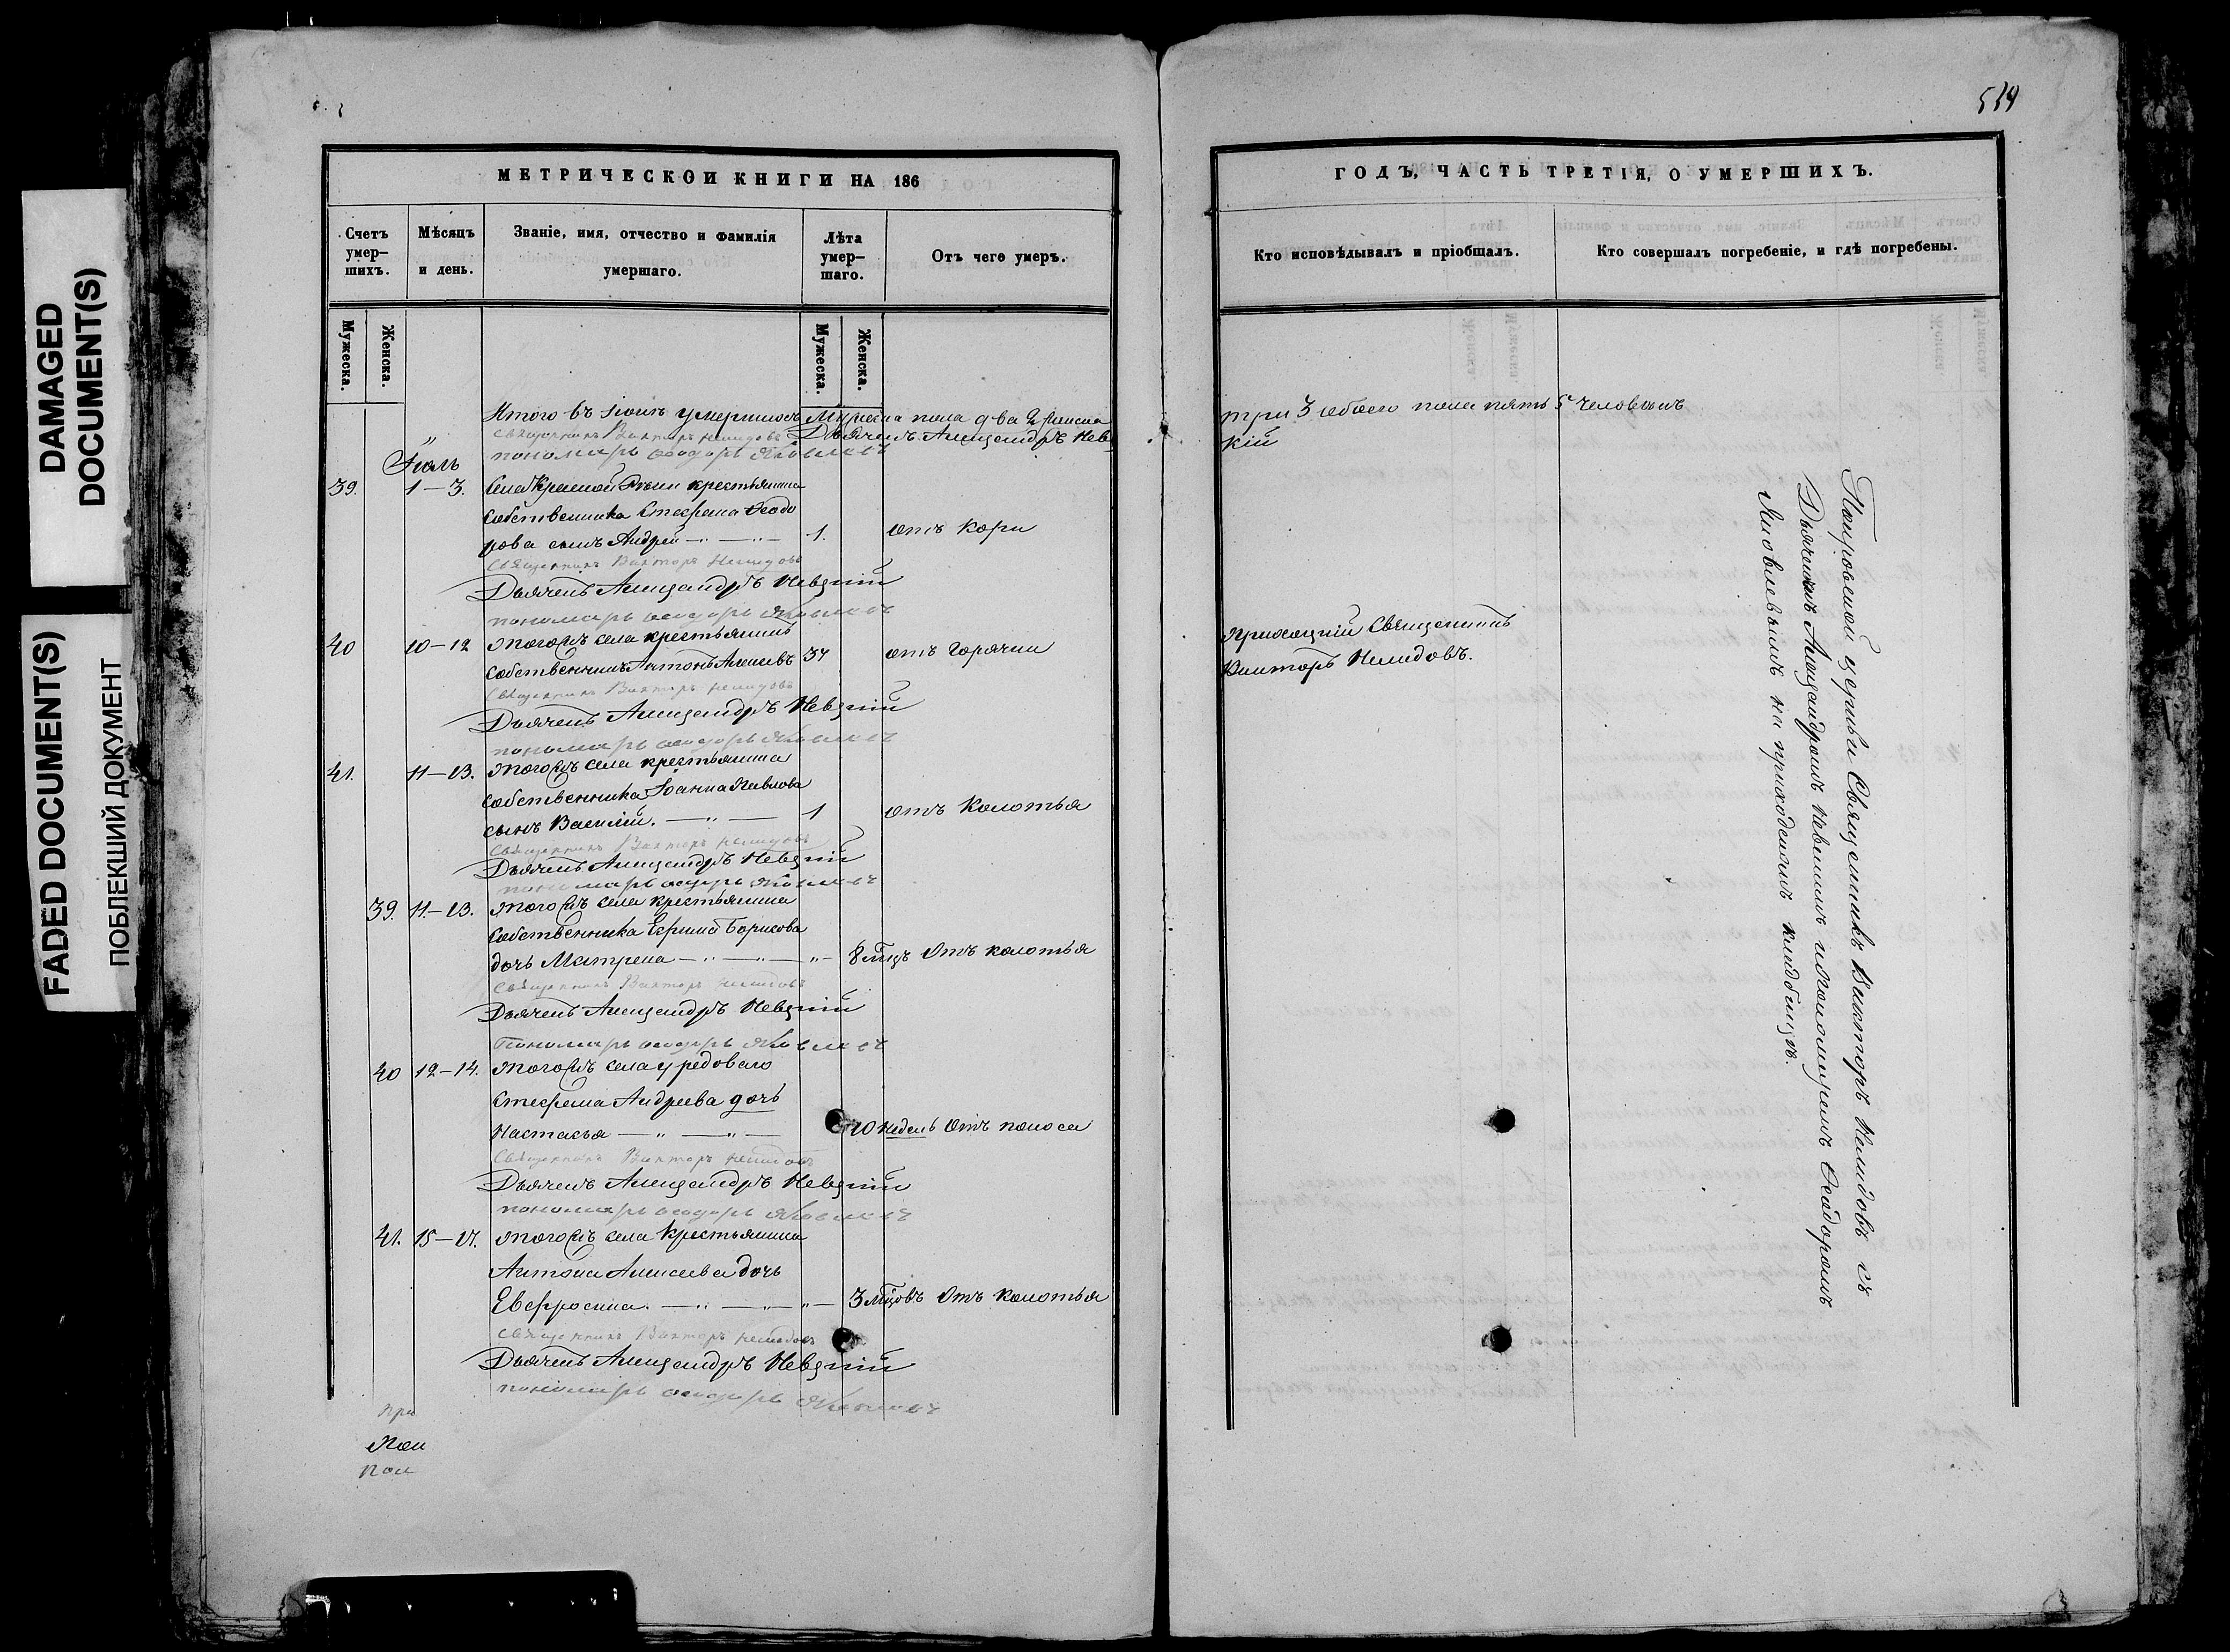 DAMAGED
DOCUMENT(S)
FADED DOCUMENT(S)
ПОБЛЕКШИЙ ДОКУМЕНТ
МЕТРИЧЕСКОЙ КНИГИ НА 186
Счетъ умер-шихъ.
Мѣсяцъ и день.
Званіе, имя, отчество и фамилія умершаго.
Лѣта умер-шаго.
Отъ чего умеръ.
Мужеска.
Женска.
Мужеска.
Женска.
Итого въ Іюнѣ умершихъ Мужеска пола два 2 женска
Священникъ Викторъ Нелидовъ Дьячекъ Александръ Нев
пономарь Ѳеодоръ Яковлевъ
Іюль
39. 1–3. Села Красной Рѣчки крестьянина
собственника Стефана Ѳеодо
рова сынъ Андрей 1. отъ Кори
Священникъ Викторъ Нелидовъ
Дьячекъ Александръ Невскій
пономарь Ѳеодоръ Яковлевъ
40 10–12 Тогожъ села крестьянинъ
собственникъ Антонъ Алексѣевъ 34 отъ Горячки
Священникъ Викторъ Нелидовъ
Дьячекъ Александръ Невскій
пономарь Ѳеодоръ Яковлевъ
41. 11–13. Тогожъ села крестьянина
собственника Іоанна Павлова
сынъ Василій. 1 отъ Колотья
Священникъ Викторъ Нелидовъ
Дьячекъ Александръ Невскій
пономарь Ѳеодоръ Яковлевъ
39. 11–13. Тогожъ села крестьянина
собственника Борисова
дочь Матрена 8 мцъ Отъ колотья
Священникъ Викторъ Нелидовъ
Дьячекъ Александръ Невскій
Пономарь Ѳеодоръ Яковлевъ
40 12–14. Тогожъ села рядоваго
Стефана Андреева дочь
Настасья 10 недель Отъ поноса
Священникъ Викторъ Нелидовъ
Дьячекъ Александръ Невскій
пономарь Ѳеодоръ Яковлевъ
41. 15–17. Тогожъ села Крестьянина
Антона Алексѣева дочь
Евфросина. 3 мцовъ Отъ Колотья
Священникъ Викторъ Нелидовъ
Дьячекъ Александръ Невскій
пономарь Ѳеодоръ Яковлевъ
519
ГОДЪ, ЧАСТЬ ТРЕТІЯ, О УМЕРШИХЪ.
Кто исповѣдывалъ и пріобщалъ.
Кто совершалъ погребеніе, и гдѣ погребены.
три 3 обоего пола пять 5 человѣкъ
кій
Приходскій Священникъ
Викторъ Нелидовъ.
Покровской церкви Священникъ Викторъ Нелидовъ съ
Дьячкомъ Александромъ Невскимъ и пономаремъ Ѳеодоромъ
Яковлевымъ на приходскомъ кладбищѣ.